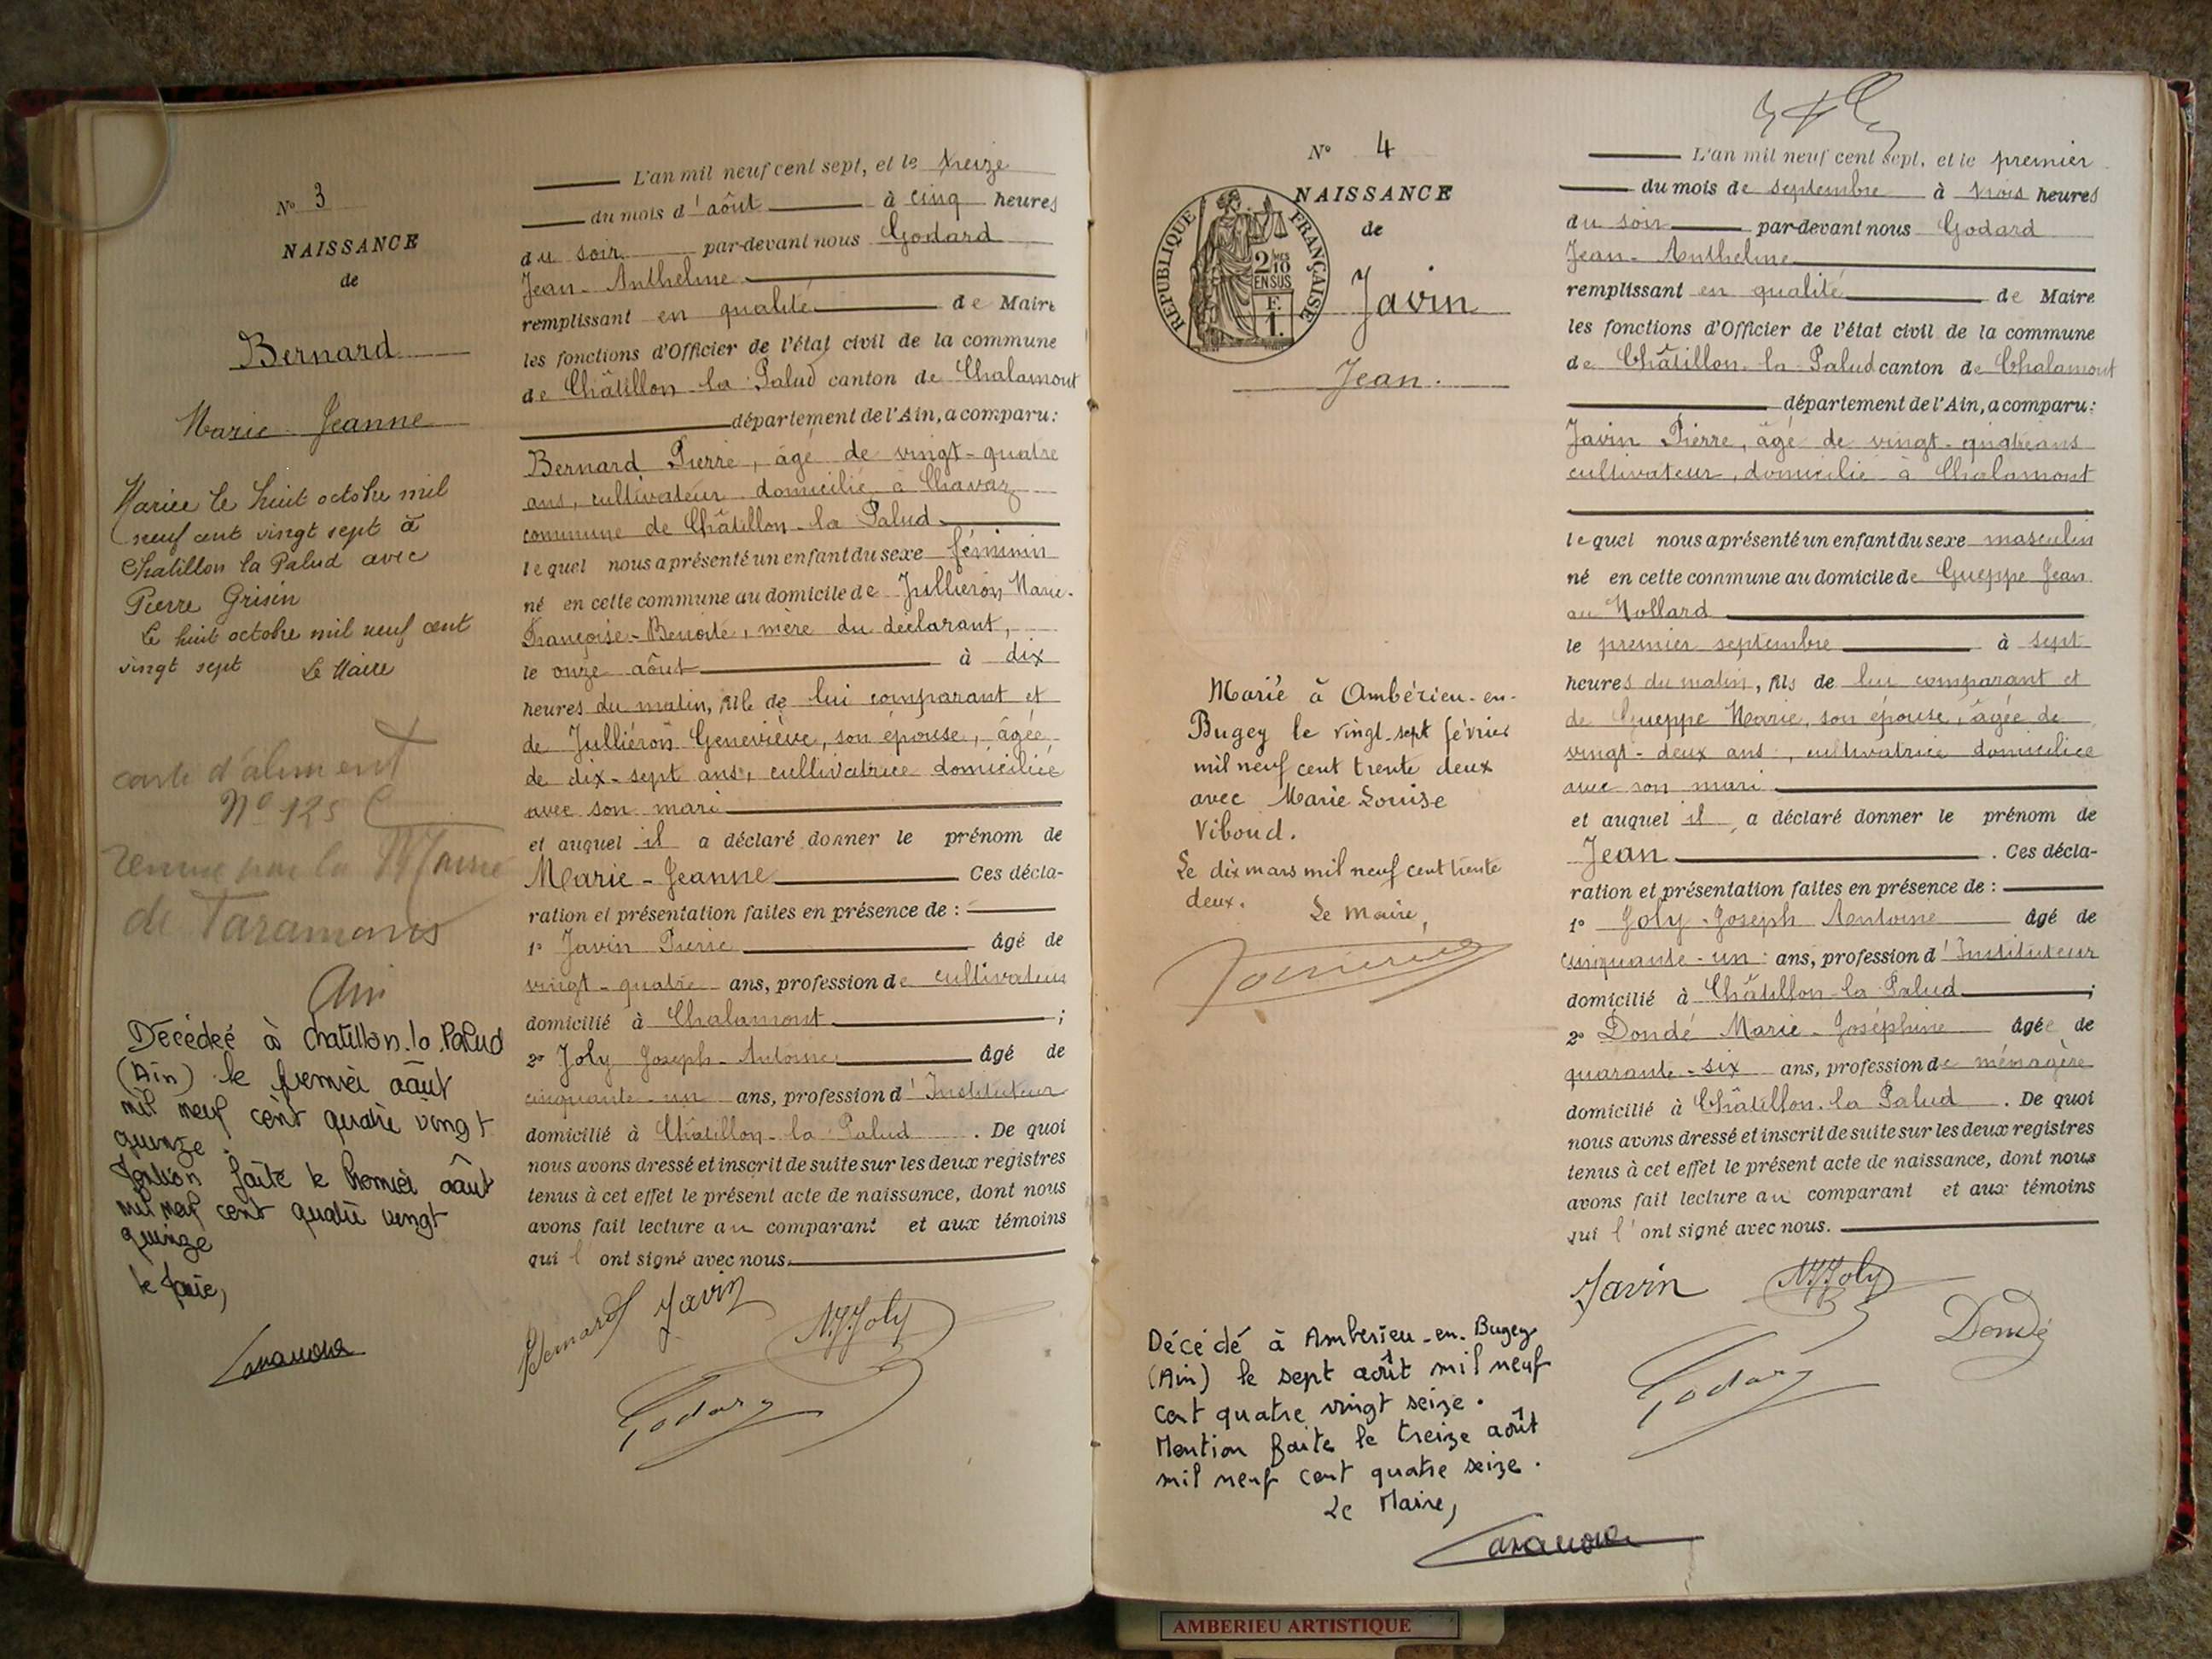 N° 3
NAISSANCE
de
Bernard
Marie-Jeanne
Mariée le huit octobre mil
neuf cent vingt sept à
Chatillon la Palud avec
Pierre Grisin
Le huit octobre mil neuf cent
vingt sept Le Maire
carte d'aliment
N° 125 C
remise par la Mairie
de Varambon
Ain
Décédée à Chatillon.la.Palud
(Ain) le premier août
mil neuf cent quatre vingt
quinze.
Mention faite le premier août
mil neuf cent quatre vingt
quinze
le Maire,
L'an mil neuf cent sept, et le treize
du mois d'aôut à cinq heures
du soir par-devant nous Godard
Jean-Anthelme
remplissant en qualité de Maire
les fonctions d'Officier de l'état civil de la commune
de Châtillon-la-Palud canton de Chalamont
département de l'Ain, a comparu:
Bernard Pierre, âgé de vingt-quatre
ans, cultivateur domicilié à Chavaz
commune de Châtillon-la Palud
lequel nous a présenté un enfant du sexe féminin
né en cette commune au domicile de Julliéron Marie-
Françoise-Benoite, mère du déclarant,
le onze aôut à dix
heures du matin, fille de lui comparant et
de Julliéron Geneviève, son épouse, âgée
de dix-sept ans, cultivatrice domiciliée
avec son mari
et auquel il a déclaré donner le prénom de
Marie-Jeanne Ces décla-
ration et présentation faites en présence de :
1° Javin Pierre âgé de
vingt-quatre ans, profession de cultivateur
domicilié à Chalamont ;
2° Joly Joseph-Antoine âgé de
cinquante-un ans, profession d'Instituteur
domicilié à Châtillon-la-Palud . De quoi
nous avons dressé et inscrit de suite sur les deux registres
tenus à cet effet le présent acte de naissance, dont nous
avons fait lecture au comparant et aux témoins
qui l'ont signé avec nous.
Bernard Javin Joly
Godard
N° 4
NAISSANCE
de
RÉPUBLIQUE FRANÇAISE
2/10 MES
EN SUS
F.
1.
Javin
Jean.
Marié à Ambérieu-en-
Bugey le vingt-sept février
mil neuf cent trente deux
avec Marie Louise
Viboud.
Le dix mars mil neuf cent trente
deux. Le Maire,
Décédé à Ambérieu-en-Bugey
(Ain) le sept août mil neuf
cent quatre vingt seize.
Mention faite le treize août
mil neuf cent quatre seize.
Le Maire,
L'an mil neuf cent sept, et le premier
du mois de septembre à trois heures
du soir par-devant nous Godard
Jean-Anthelme
remplissant en qualité de Maire
les fonctions d'Officier de l'état civil de la commune
de Châtillon-la-Palud canton de Chalamont
département de l'Ain, a comparu:
Javin Pierre, âgé de vingt-quatre ans
cultivateur, domicilié à Chalamont
lequel nous a présenté un enfant du sexe masculin
né en cette commune au domicile de Gueppe Jean
au Mollard
le premier septembre à sept
heures du matin, fils de lui comparant et
de Gueppe Marie, son épouse, âgée de
vingt-deux ans, cultivatrice domiciliée
avec son mari
et auquel il a déclaré donner le prénom de
Jean . Ces décla-
ration et présentation faites en présence de :
1° Joly-Joseph Antoine âgé de
cinquante-un ans, profession d'Instituteur
domicilié à Châtillon-la Palud ;
2° Dondé Marie-Joséphine âgée de
quarante-six ans, profession de ménagère
domicilié à Châtillon-la Palud . De quoi
nous avons dressé et inscrit de suite sur les deux registres
tenus à cet effet le présent acte de naissance, dont nous
avons fait lecture au comparant et aux témoins
qui l'ont signé avec nous.
Javin Joly
Dondé
Godard
AMBERIEU ARTISTIQUE